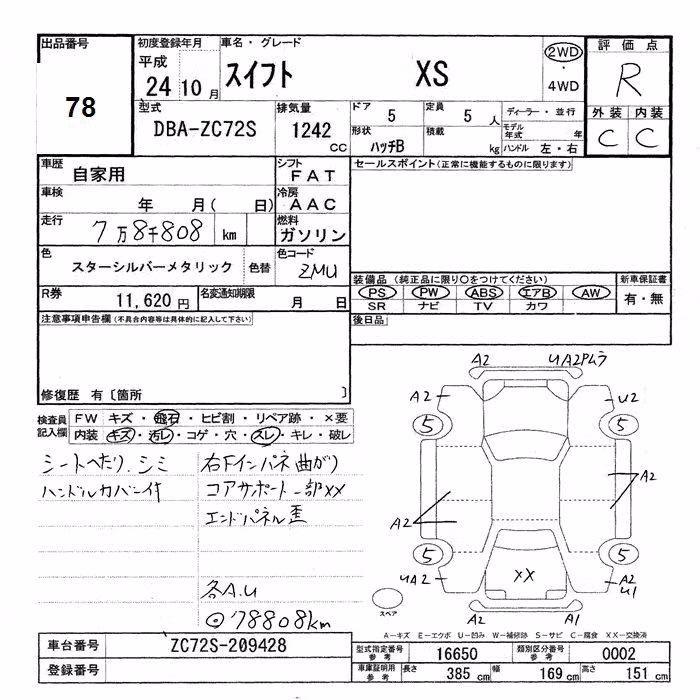 出品番号
78
初度登録年月
平成
24 10 月
車名・グレード
スイフト XS
2WD
・
4WD
評価点
R
外装 内装
C C
型式
DBA-ZC72S
排気量
1242 CC
ドア 5
定員 5 人
形状 ハッチB
積載 kg
ディーラー・並行
モデル年式 年
ハンドル 左・右
車歴
自家用
シフト
FAT
車検
年 月( 日)
冷房
AAC
走行
7万8千808 km
燃料
ガソリン
色
スターシルバーメタリック
色替
色コード
ZMU
R券
11,620 円
名変通知期限
月 日
セールスポイント(正常に機能するものに限ります)
装備品(純正品に限り○をつけてください)
PS PW ABS エアB AW
SR ナビ TV カワ
新車保証書
有・無
後日品
注意事項申告欄(不具合内容等は具体的に記入して下さい)
修復歴 有〔箇所 〕
検査員記入欄
FW キズ・飛石・ヒビ割・リペア跡・×要
内装 キズ・汚レ・コゲ・穴・スレ・キレ・破レ
シートへたり.シミ
ハンドルカバー付
右Fインパネ曲がり
コアサポート一部XX
エンドパネル歪
各A.U
◎78808km
A2 UA2Pムラ
A2 U2
5 5
A2 A2
5 5
UA2 XX A2
U1
スペア
A2 A1
A−キズ E−エクボ U−凹み W−補修跡 S−サビ C−腐食 XX−交換済
車台番号
ZC72S-209428
登録番号
型式指定番号 参考
16650
類別区分番号 参考
0002
車庫証明用 参考
長さ 385 cm
幅 169 cm
高さ 151 cm